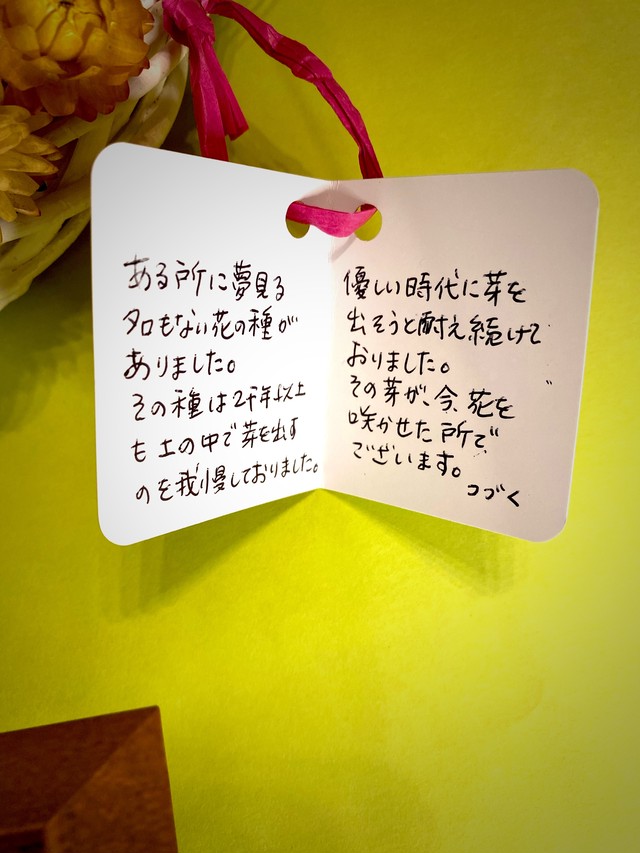 ある所に夢見る
名もない花の種が
ありました。
その種は2千年以上
も土の中で芽を出す
のを我慢しておりました。
優しい時代に芽を
出そうと耐え続けて
おりました。
その芽が、今、花を
咲かせた所で
ございます。
つづく